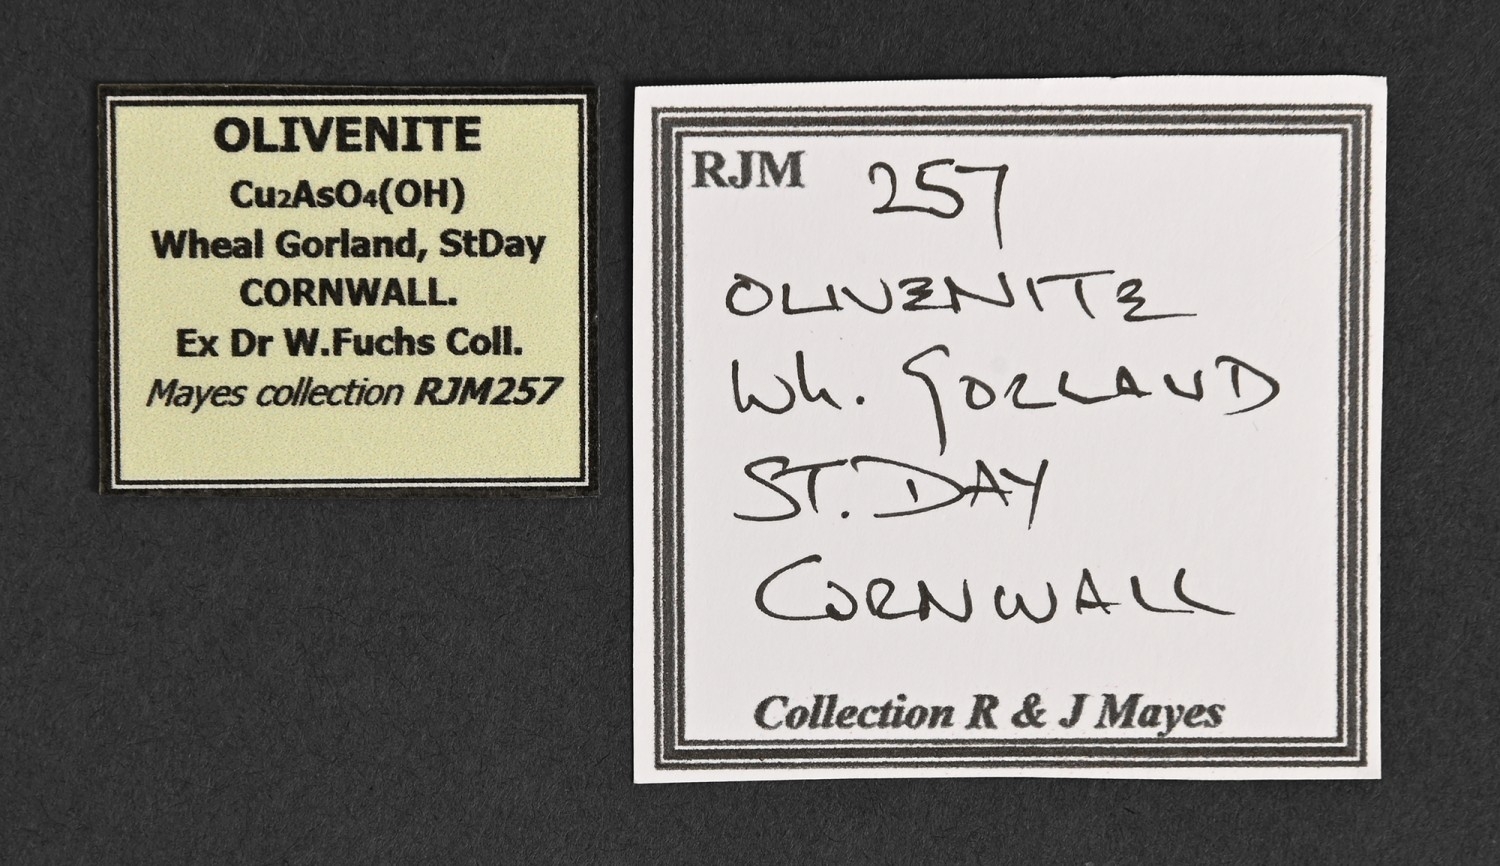 OLIVENITE
Cu₂AsO₄(OH)
Wheal Gorland, StDay
CORNWALL.
Ex Dr W.Fuchs Coll.
Mayes collection RJM257
RJM 257
OLIVENITE
Wh. GORLAND
ST. DAY
CORNWALL
Collection R & J Mayes